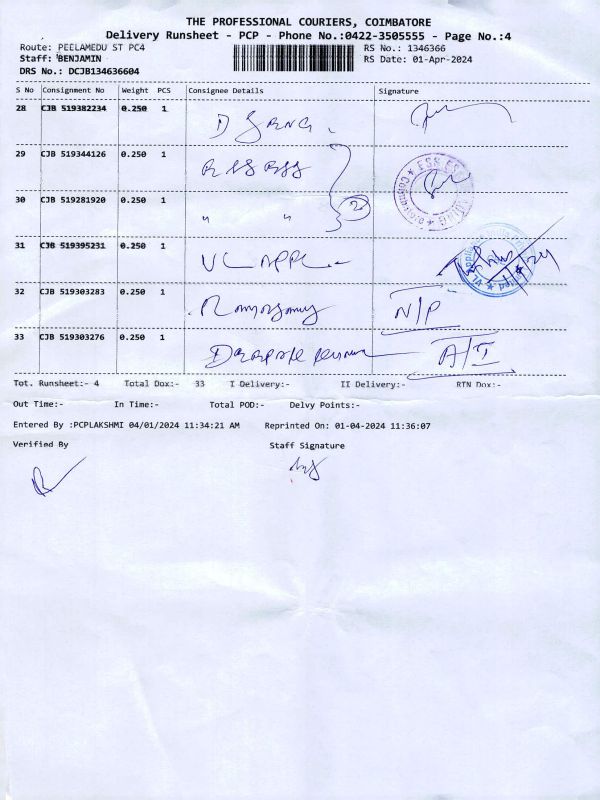 THE PROFESSIONAL COURIERS, COIMBATORE
Delivery Runsheet - PCP - Phone No.:0422-3505555 - Page No.:4
Route: PEELAMEDU ST PC4 RS No.: 1346366
Staff: BENJAMIN RS Date: 01-Apr-2024
DRS No.: DCJB134636604
S No Consignment No Weight PCS Consignee Details Signature
28 CJB 519382234 0.250 1
29 CJB 519344126 0.250 1
30 CJB 519281920 0.250 1 " " 2
31 CJB 519395231 0.250 1
32 CJB 519303283 0.250 1 N/P
33 CJB 519303276 0.250 1
Tot. Runsheet:- 4 Total Dox:- 33 I Delivery:- II Delivery:- RTN Dox:-
Out Time:- In Time:- Total POD:- Delvy Points:-
Entered By :PCPLAKSHMI 04/01/2024 11:34:21 AM Reprinted On: 01-04-2024 11:36:07
Verified By Staff Signature